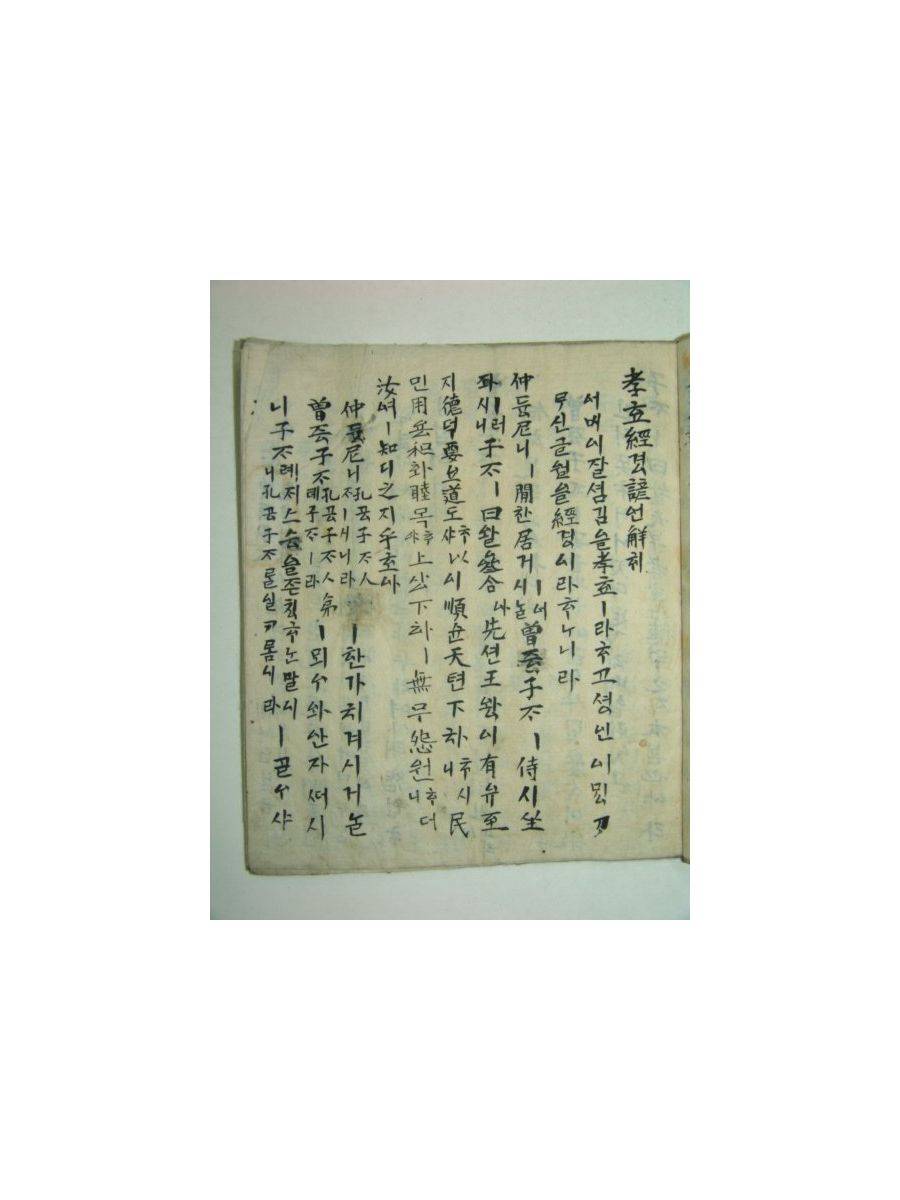 孝효經경諺언解히
어버이잘셤김을孝효ㅣ라ᄒᆞ고셩인이ᄆᆡᆼᄀᆞ
ᄅᆞ신글월을經경이라ᄒᆞᄂᆞ니라
仲듕尼니ㅣ閒한居거ㅣ어시ᄂᆞᆯ曾증子ᄌᆞㅣ侍시坐
좌ㅣ러시니子ᄌᆞㅣ曰왈參ᄉᆞᆷ아先션王왕이有유至
지德덕要요道도ᄒᆞ샤以이順슌天텬下하ᄒᆞ시니民
민用용和화睦목ᄒᆞ야上샹下하ㅣ無무怨원ᄒᆞ더니
汝여ㅣ知디之지乎호아
仲듕尼니ㅣ孔공子ᄌᆞㅣ시니라ㅣ한가히겨시거ᄂᆞᆯ
曾증子ᄌᆞ孔공子ᄌᆞ弟뎨子ᄌᆞㅣ라ㅣ뫼ᄋᆞ와산자쎠시
니子ᄌᆞ례ᄉᆞ스승을존칭ᄒᆞᄂᆞᆫ말이니孔공子ᄌᆞᄅᆞᆯ닐ᄋᆞᆷ이라ㅣᄀᆞᆯᄋᆞ샤